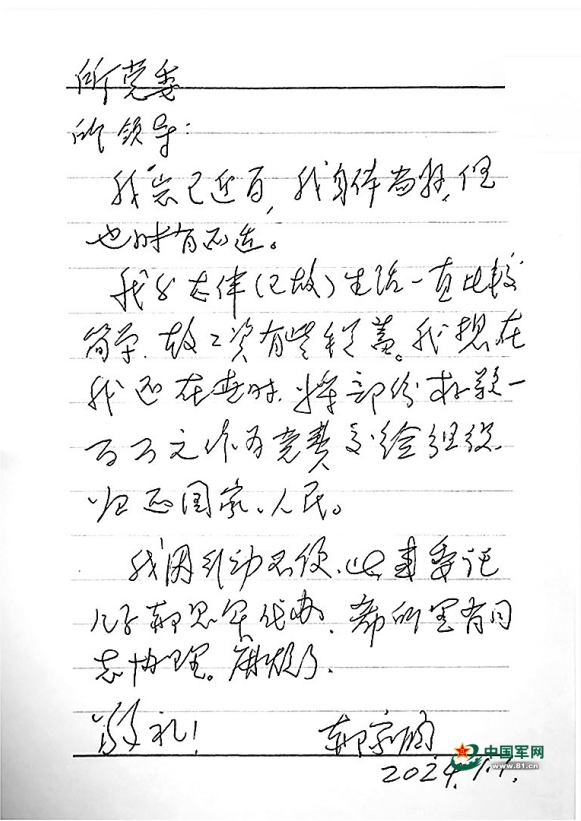 所党委
所领导：
我岁已近百，我身体尚好，但
也时有不适。
我与老伴(已故)生活一直比较
简单，故工资有些积蓄。我想在
我还在世时，将部份存款一
百万元作为党费交给组织
归还国家、人民。
我因行动不便，此事委托
儿子代办，希所里有同
志协理。麻烦了。
敬礼！
2024.1.1.
中国军网
www.81.cn